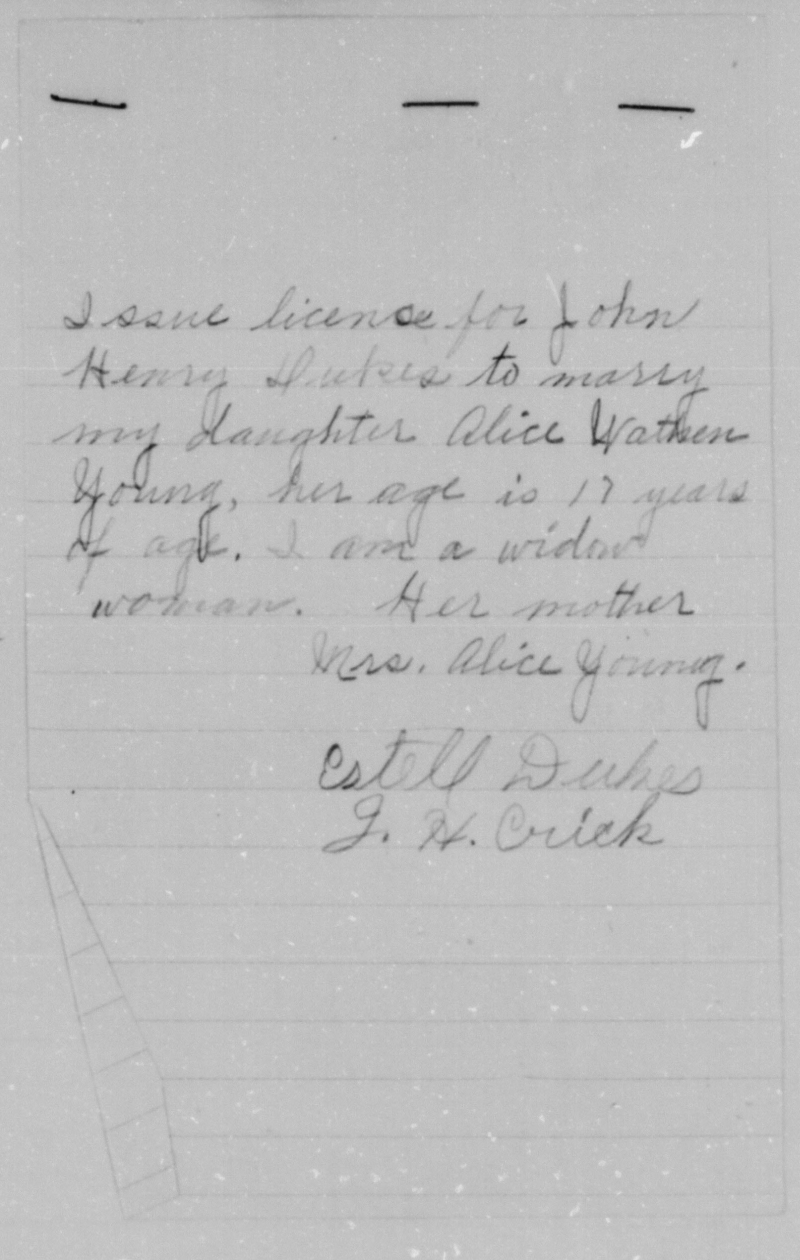 Issue license for John
Henry Dukes to marry
my daughter Alice Wathen
Young, her age is 17 years
of age. I am a widow
woman. Her mother
Mrs. Alice Young.
Estell Dukes
J. H. Crick